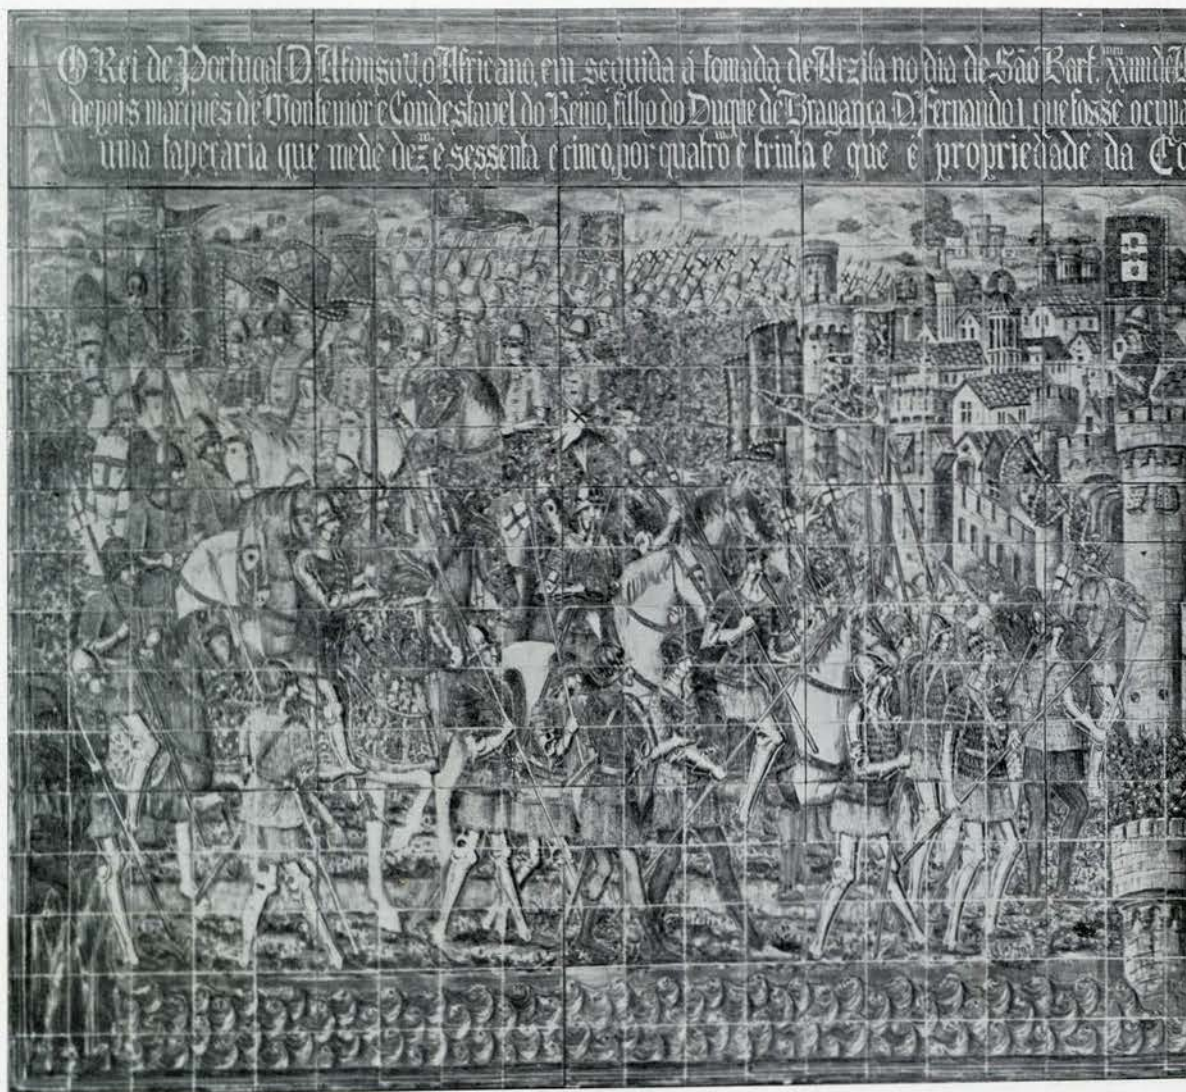 O Rei de Portugal D. Afonso V, o Africano, em seguida á tomada de Arzila no dia de São Bart.meu xxiiii de
depois marquês de Montemór e Condestavel do Reino, filho do Duque de Bragança, D. Fernando I que fosse
uma tapeçaria que mede dez m. e sessenta e cinco, por quatro m. e trinta e que é propriedade da